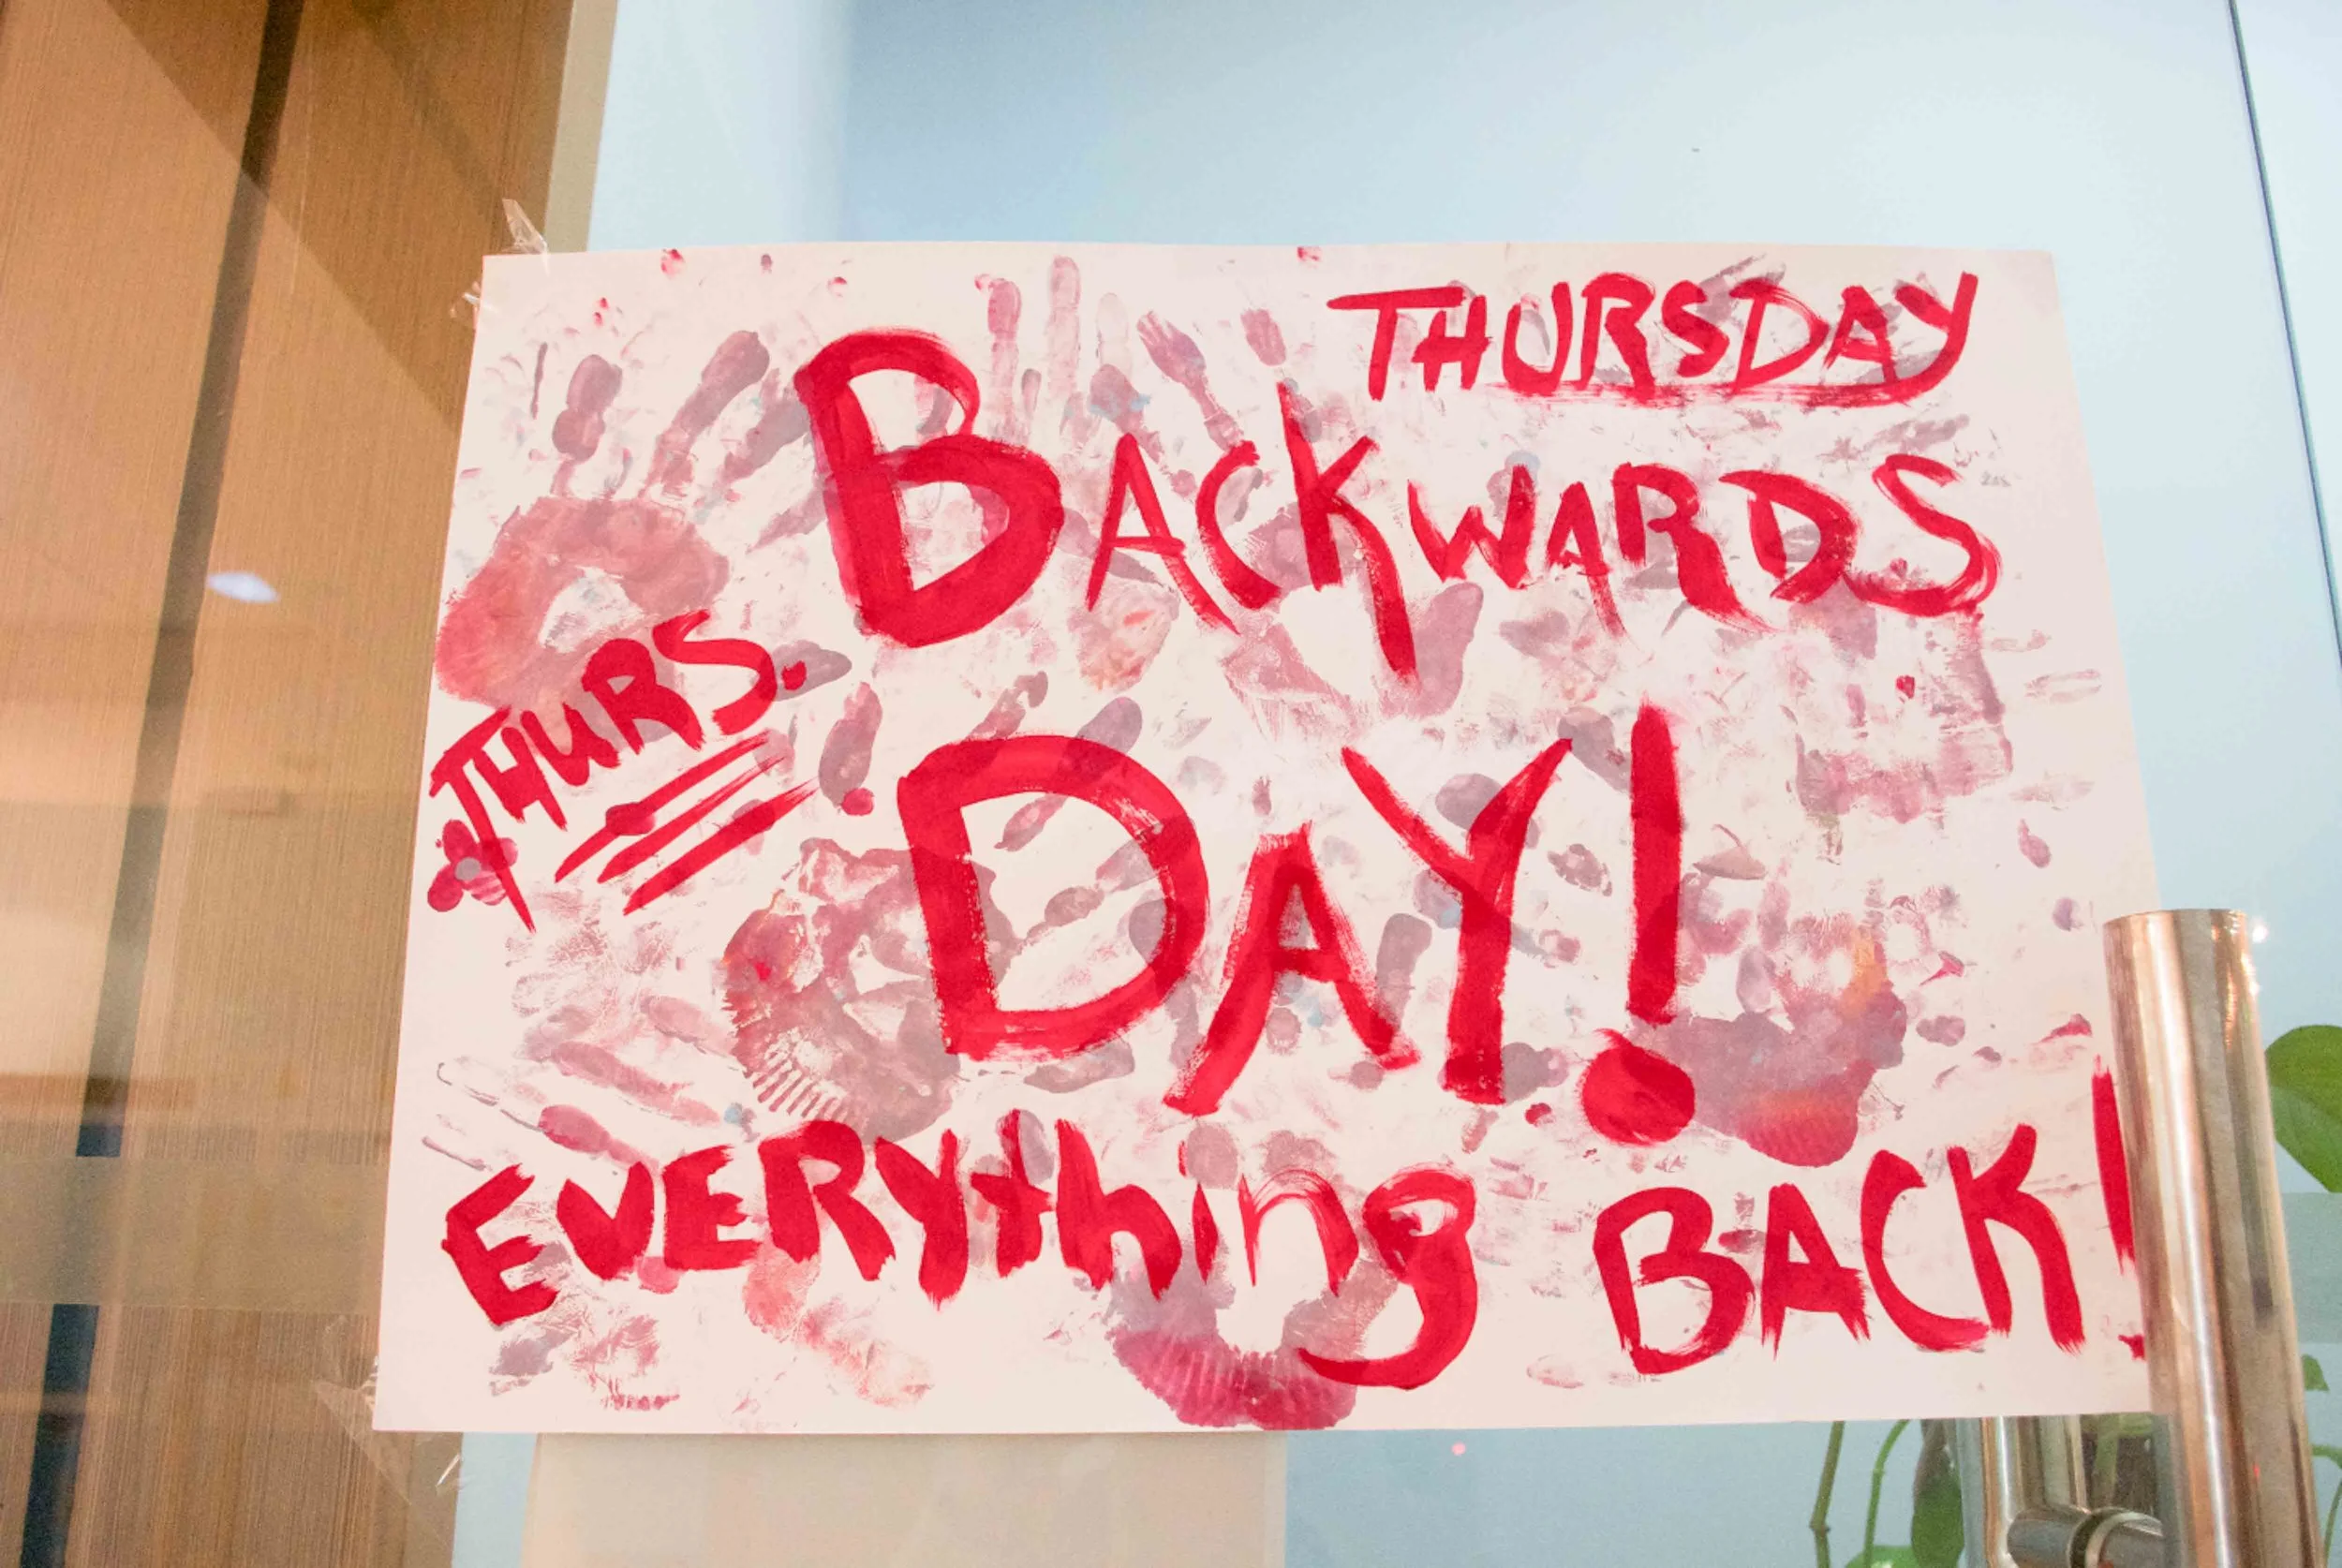 THURSDAY
BACKWARDS
THURS.
DAY!
EVERYthing BACK!